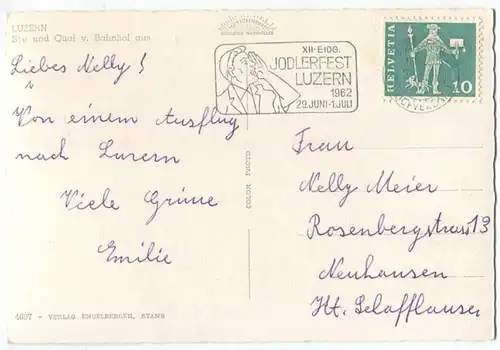 LUZERN
See und Quai v. Bahnhof aus
Liebes Nelly!
Von einem Ausflug
nach Luzern
Viele Grüsse
Emilie
4697 - VERLAG ENGELBERGER, STANS
COLOR PHOTO
XII. EIDG.
JODLERFEST
LUZERN
1962
29. JUNI-1. JULI
HELVETIA
10
Frau
Nelly Meier
Rosenbergstrass 13
Neuhausen
Kt. Schaffhausen